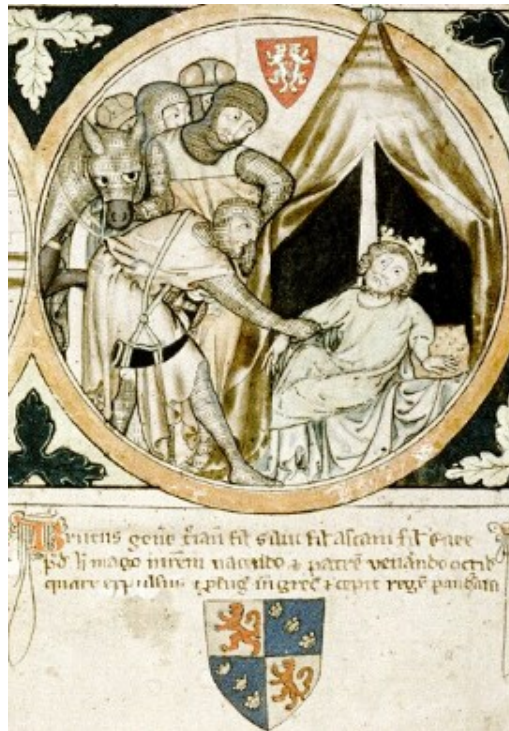 Brutus gene t'ian fil silui fil ascani fil enee
pd li mago mrem nascendo & patre venando occid
quare expulsus & pfug in grec & cepit rege pandrasu